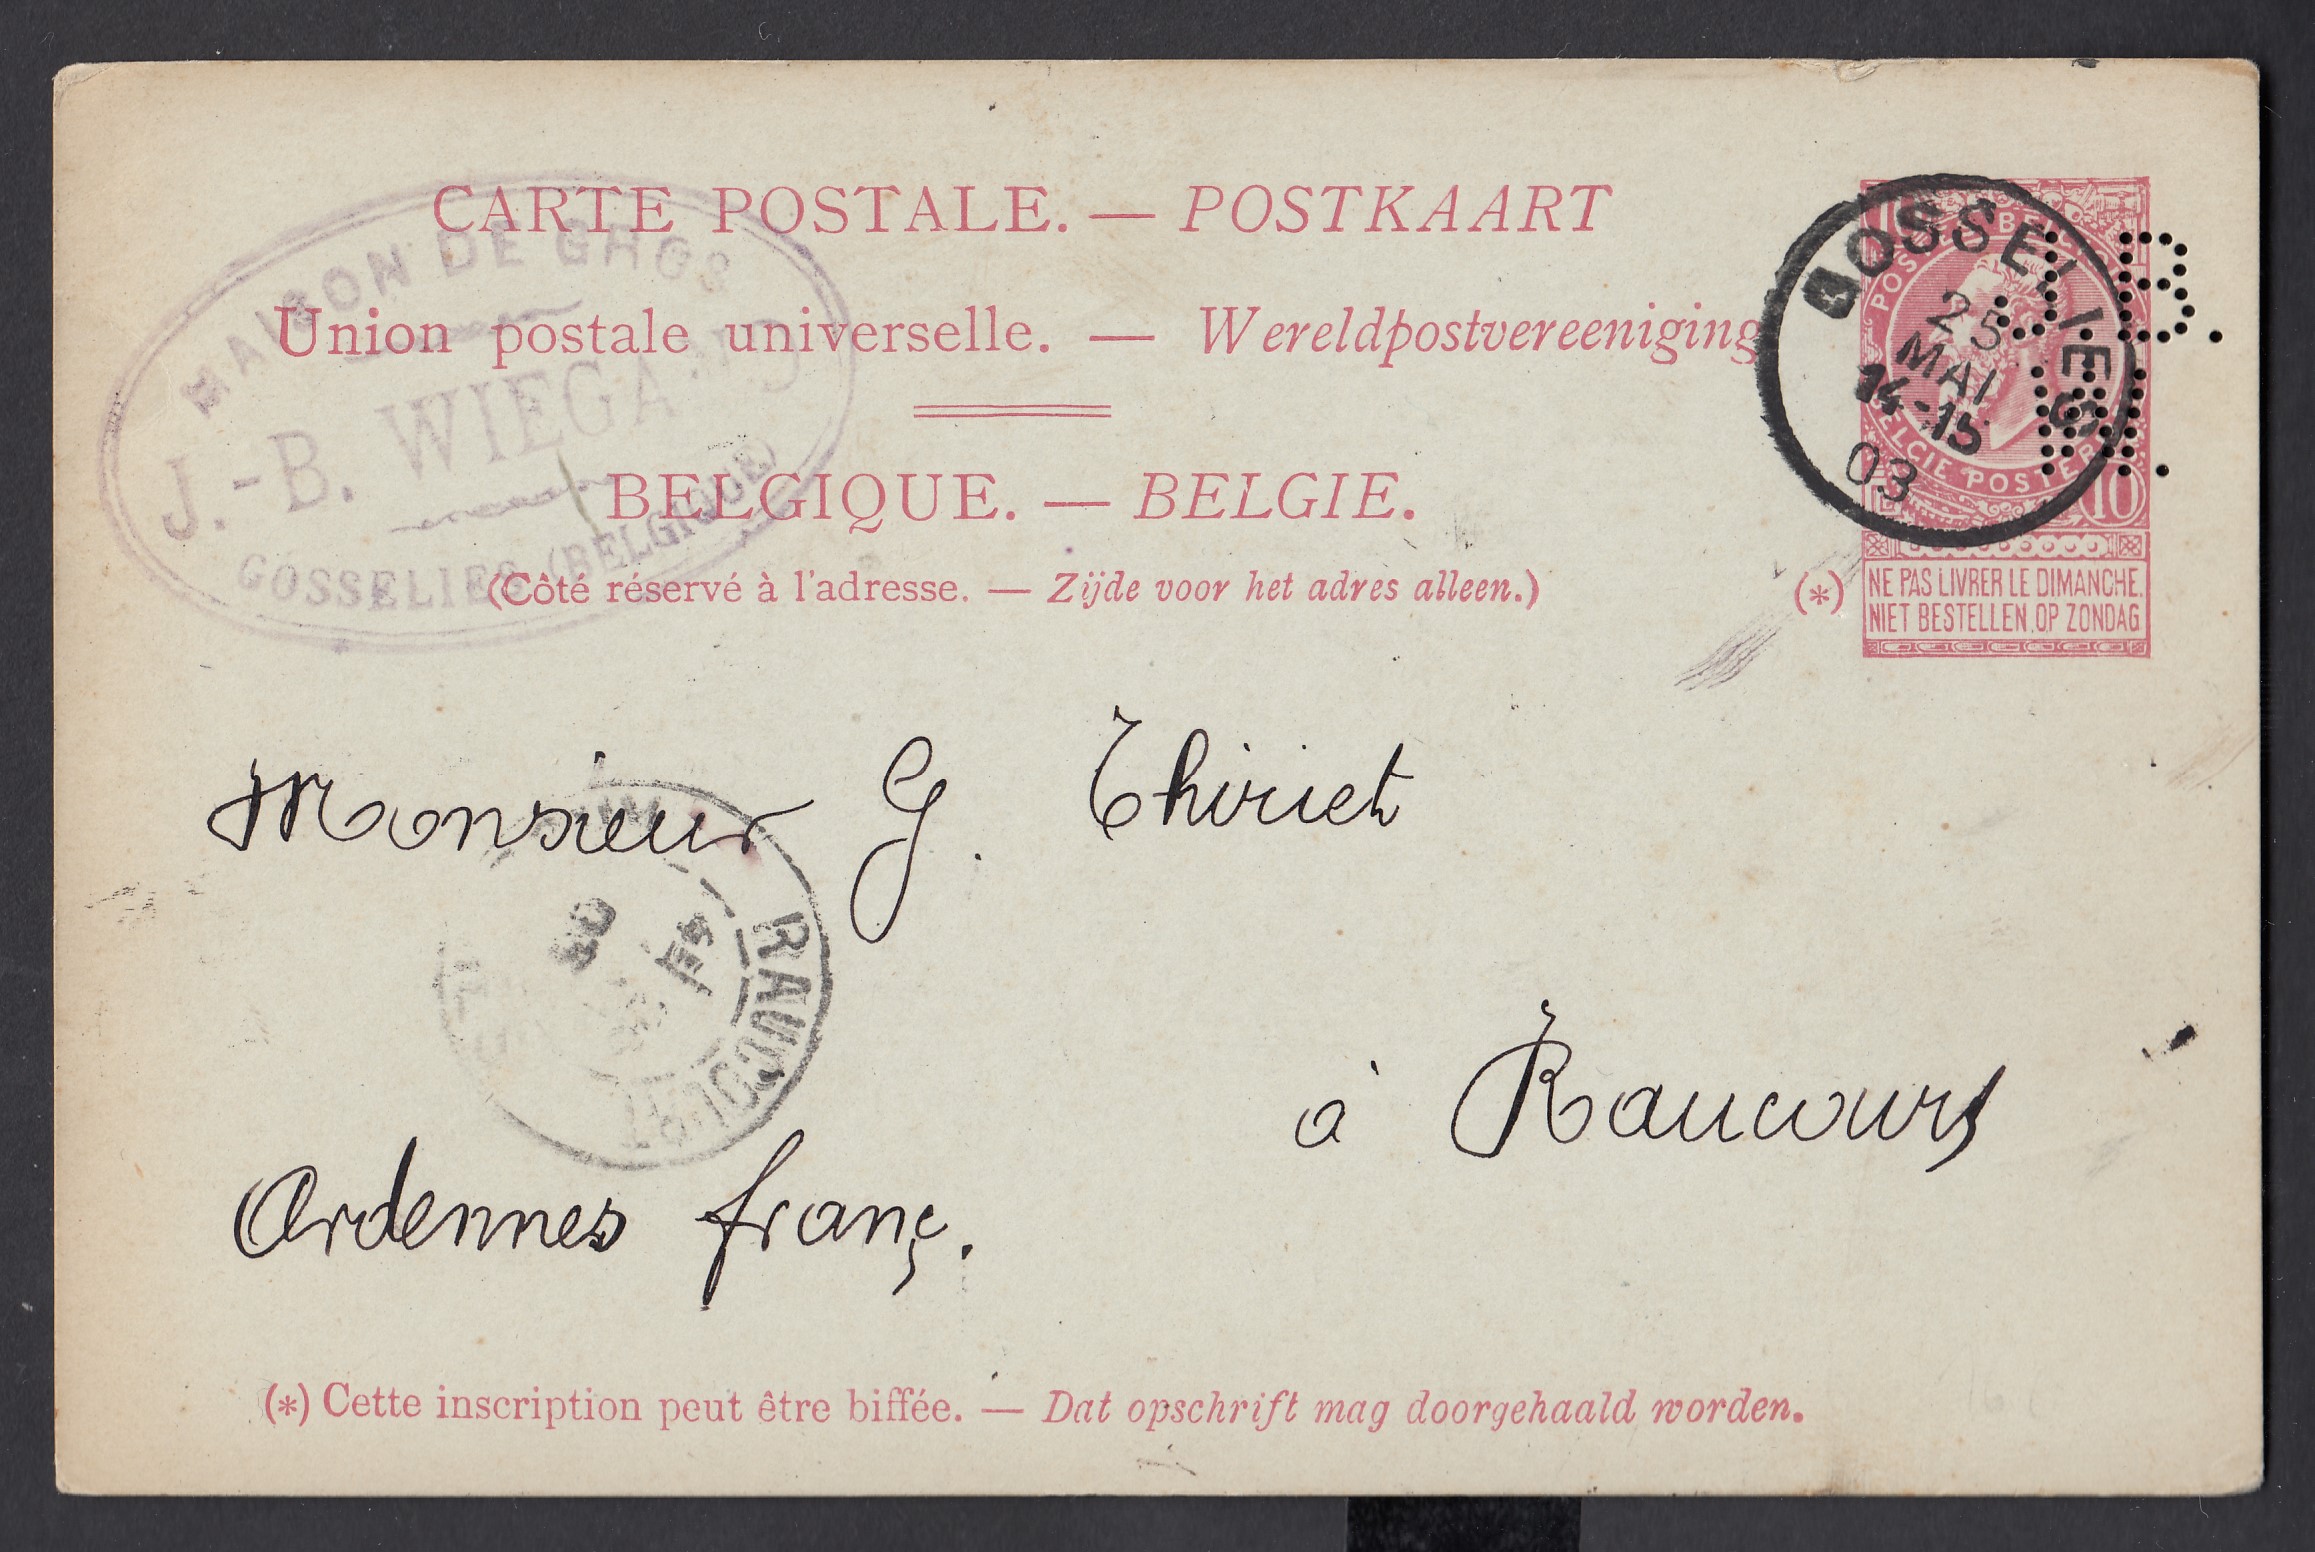 CARTE POSTALE. — POSTKAART
Union postale universelle. — Wereldpostvereeniging
BELGIQUE. — BELGIE.
(Côté réservé à l'adresse. — Zijde voor het adres alleen.)
MAISON DE GROS
J.-B. WIEGAND
GOSSELIES (BELGIQUE)
GOSSELIES
25
MAI
14-15
03
J.B.
W.
BELGIE POSTERIJ
10
(*)
NE PAS LIVRER LE DIMANCHE.
NIET BESTELLEN OP ZONDAG
Monsieur G. Thiriet
RAUCOURT
03
à Raucourt
Ardennes franç.
(*) Cette inscription peut être biffée. — Dat opschrift mag doorgehaald worden.